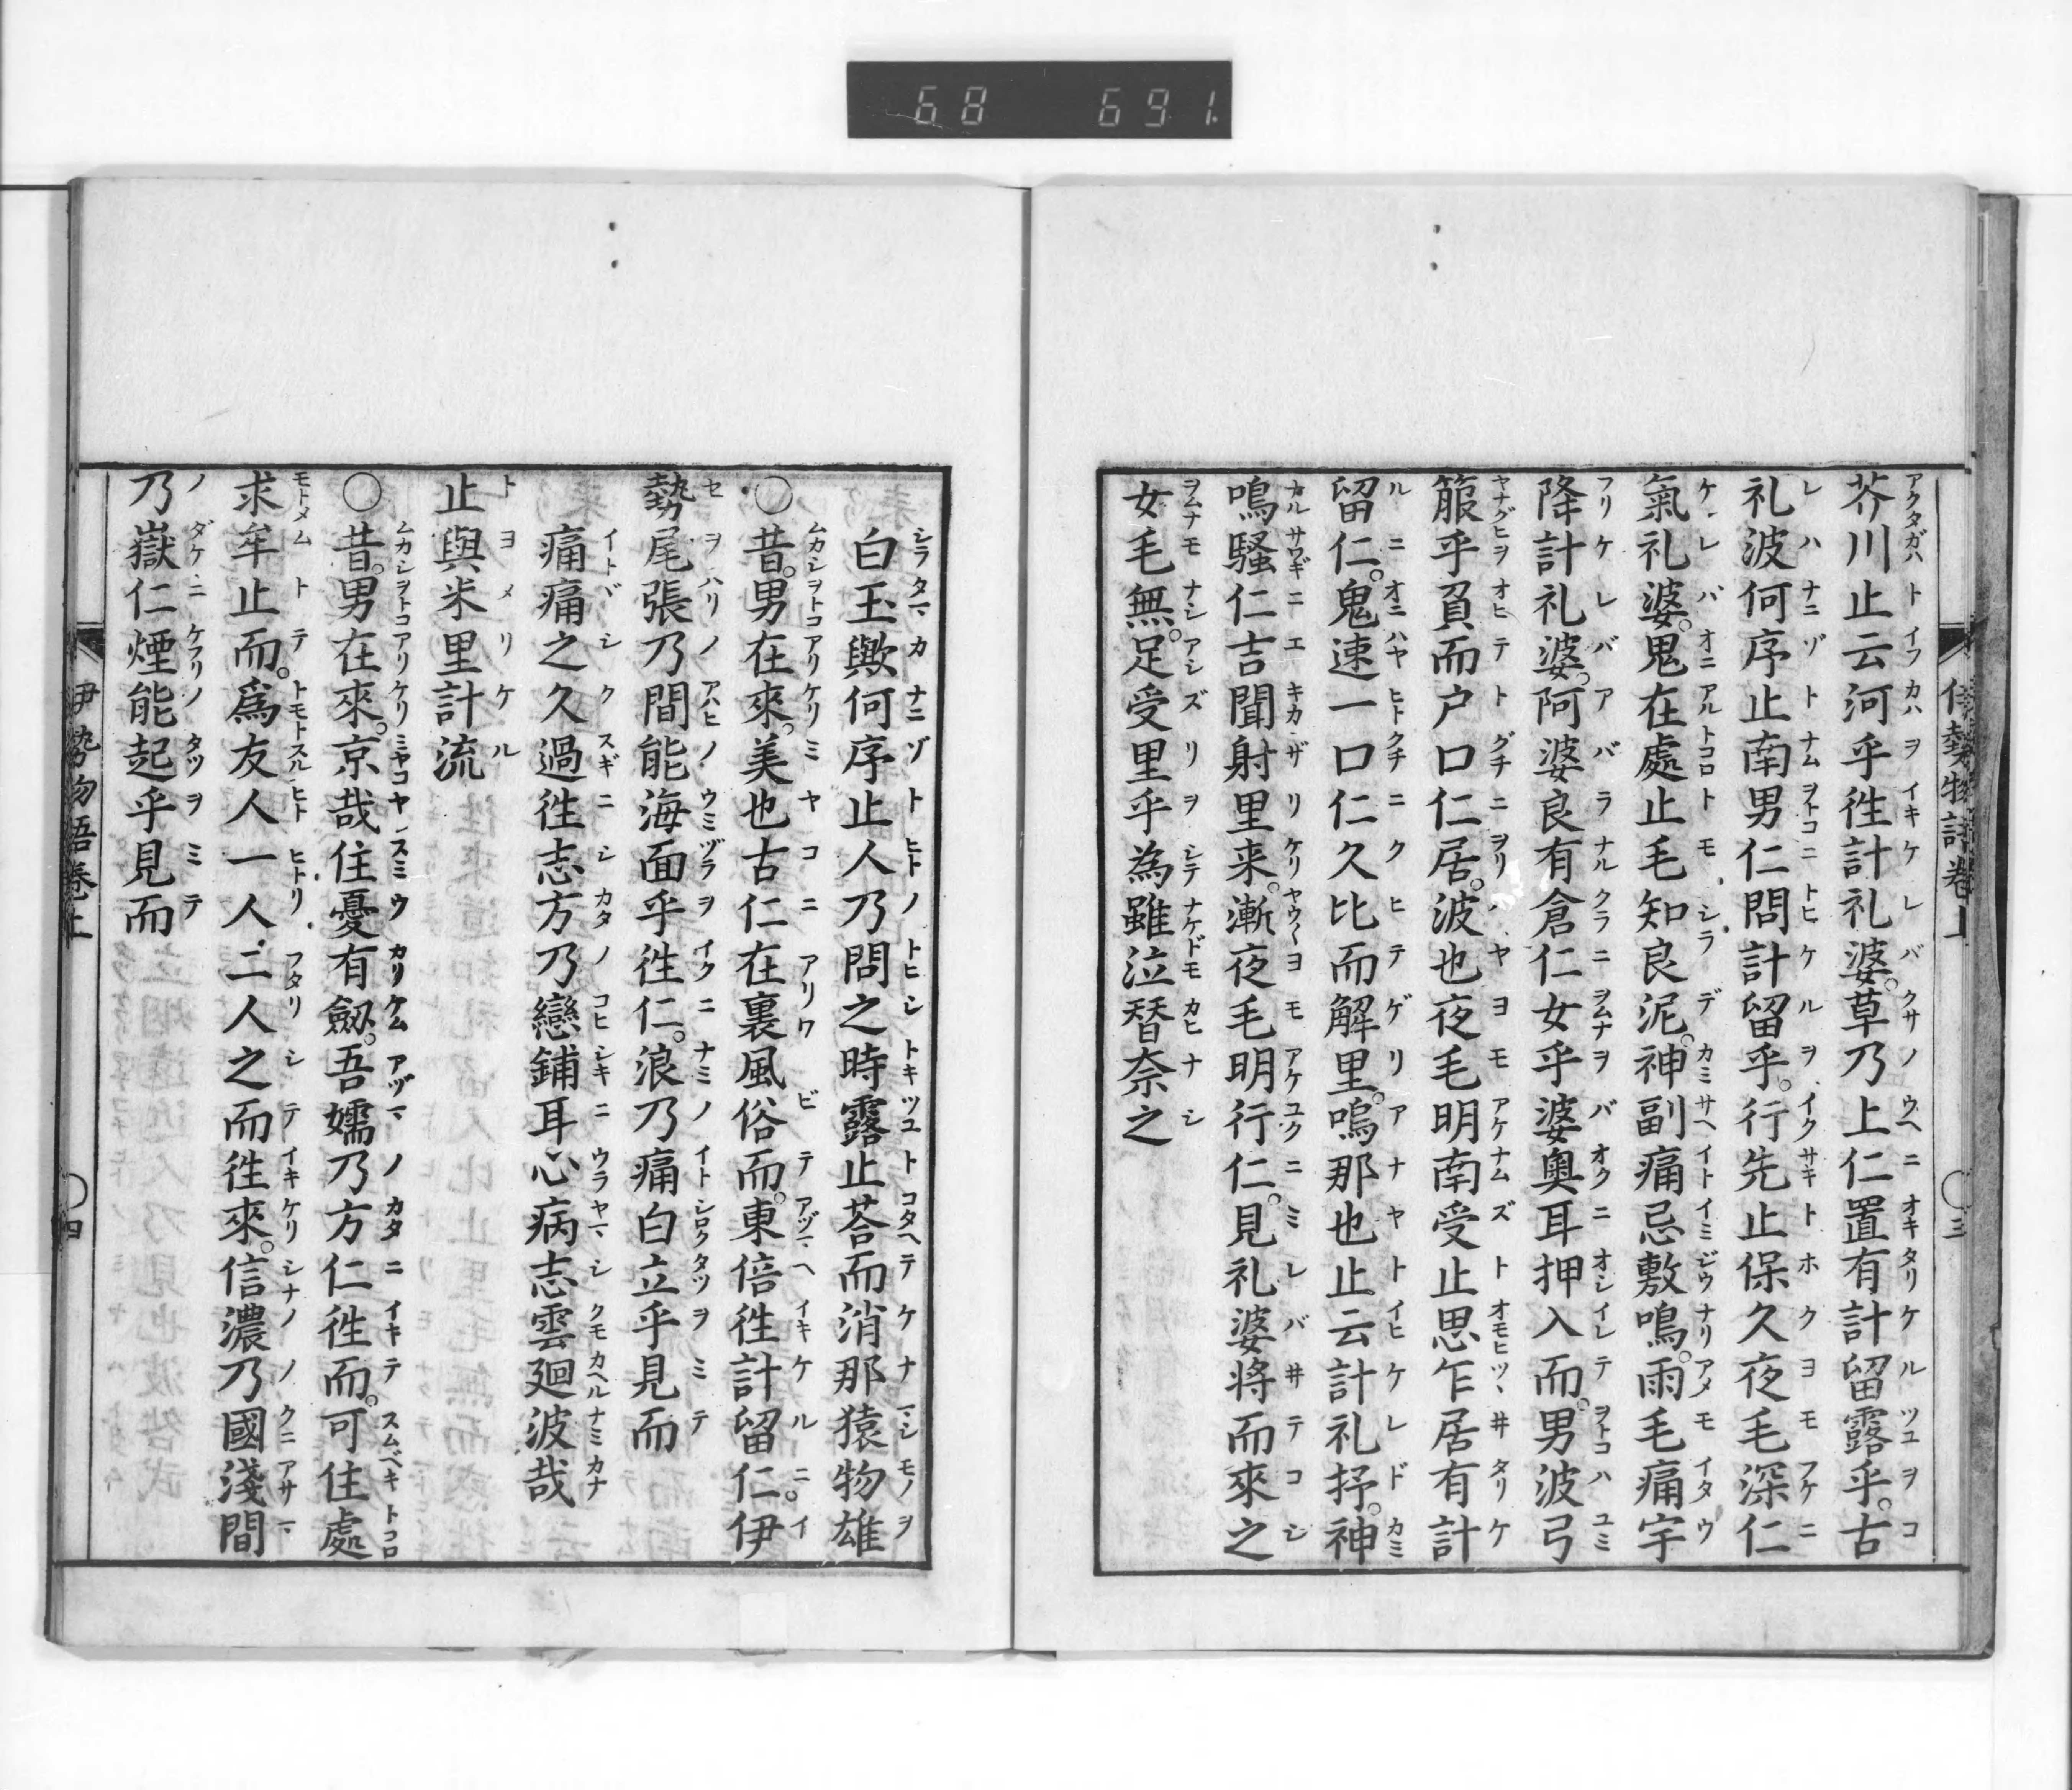 68 691.
伊勢物語卷上
〇三
芥川止云河乎徃計礼婆。草乃上仁置有計留露乎。古
礼波何序止南男仁問計留乎。行先止保久夜毛深仁
氣礼婆。鬼在處止毛知良泥。神副痛忌敷鳴。雨毛痛宇
降計礼婆。阿婆良有倉仁女乎婆奥耳押入而。男波弓
箙乎負而户口仁居。波也夜毛明南受止思乍居有計
留仁。鬼速一口仁久比而解里。嗚那也止云計礼抒。神
鳴騒仁吉聞射里来。漸夜毛明行仁。見礼婆将而來之
女毛無。足受里乎為雖泣替奈之
白玉歟何序止人乃問之時露止荅而消那猿物雄
〇昔。男在來。美也古仁在裏風俗而。東倍徃計留仁。伊
勢尾張乃間能海面乎徃仁。浪乃痛白立乎見而
痛痛之久過徃志方乃戀鋪耳心病志雲廻波哉
止與米里計流
〇昔。男在來。京哉住憂有劔。吾嬬乃方仁徃而。可住處
求牟止而。爲友人一人二人之而徃來。信濃乃國淺間
乃嶽仁煙能起乎見而
伊勢物語卷上
〇四